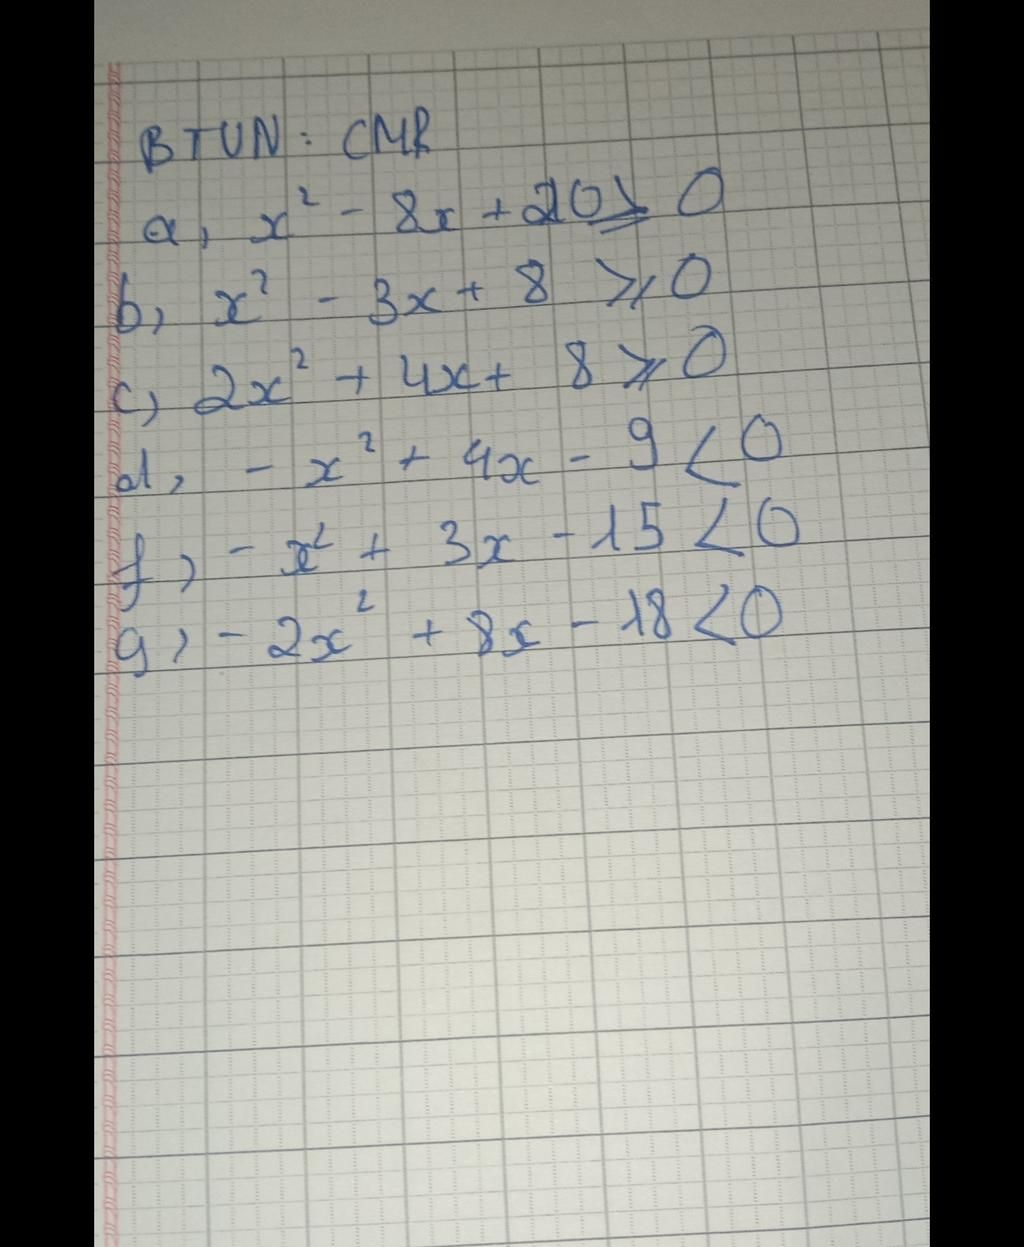 BTVN: CMR
a, x² - 8x + 20 ≥ 0
b, x² - 3x + 8 ≥ 0
c, 2x² + 4x + 8 ≥ 0
d, - x² + 4x - 9 < 0
f, - x² + 3x - 15 < 0
g, - 2x² + 8x - 18 < 0